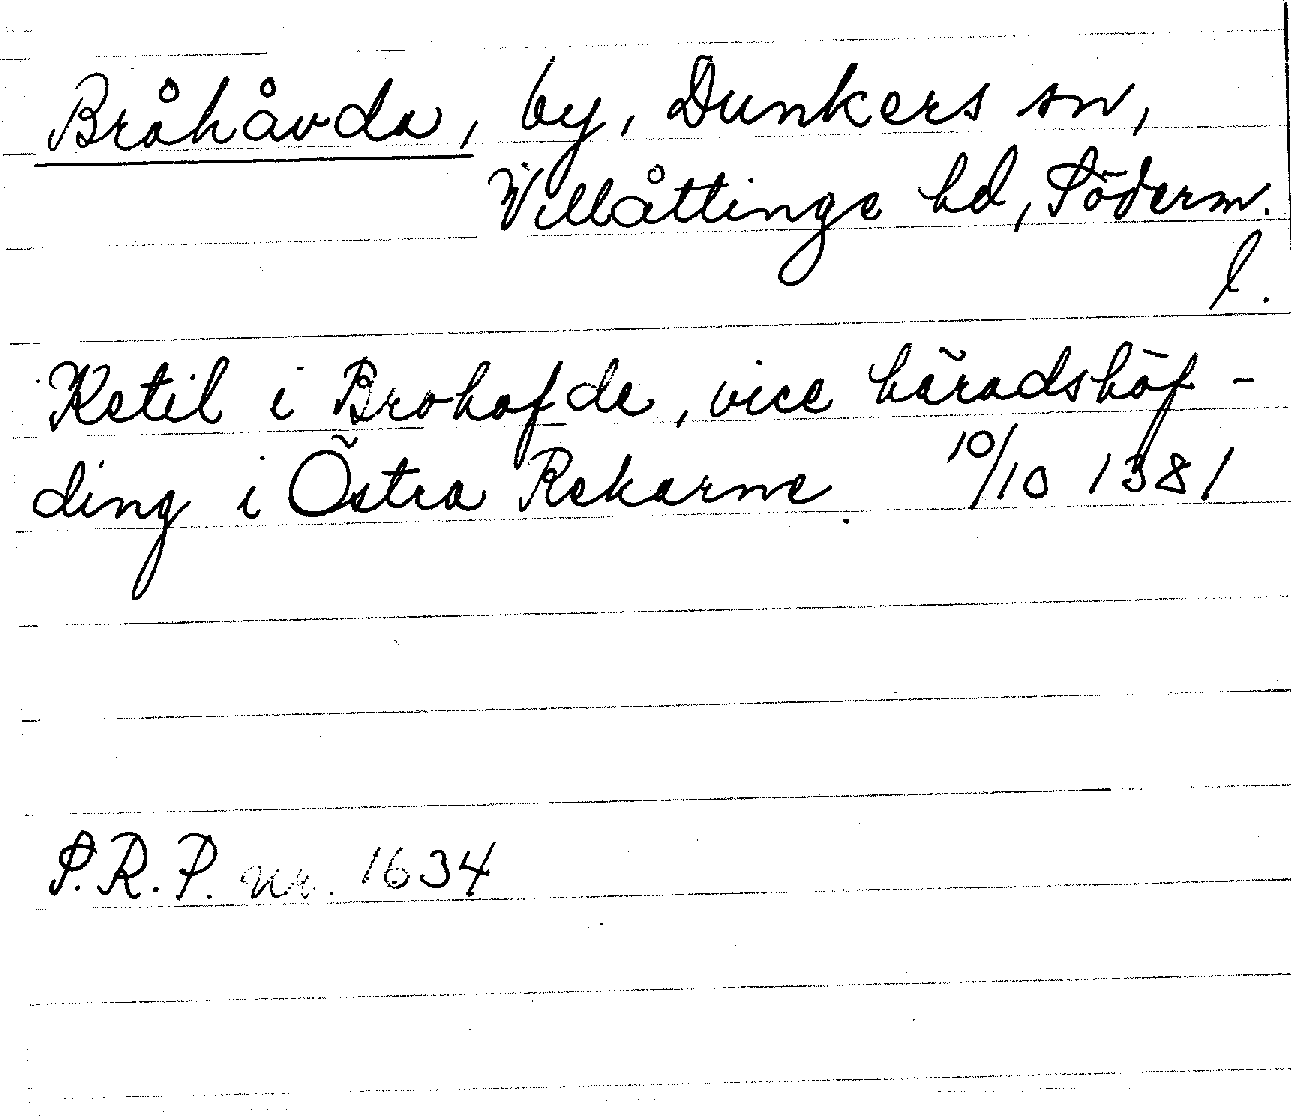 Bråhåvda, by, Dunkers sn,
Villåttinge hd, Söderm.
l.
Ketil i Brohofde, vice häradshöf-
ding i Östra Rekarne. 10/10 1381
S.R.P. nr. 1634